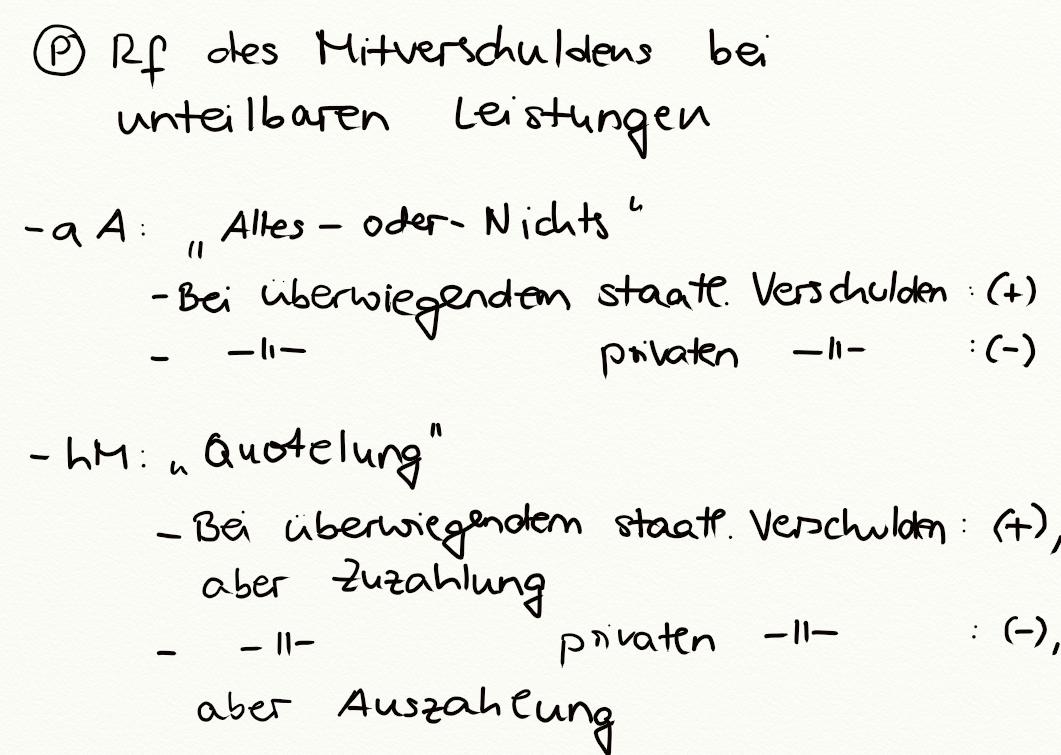 Ⓟ Rf des Mitverschuldens bei
unteilbaren Leistungen
- a A: „Alles-oder-Nichts“
- Bei überwiegendem staatl. Verschulden: (+)
- -||- privaten -||- : (-)
- hM: „Quotelung"
- Bei überwiegendem staatl. Verschulden: (+),
aber Zuzahlung
- -||- privaten -||- : (-),
aber Auszahlung